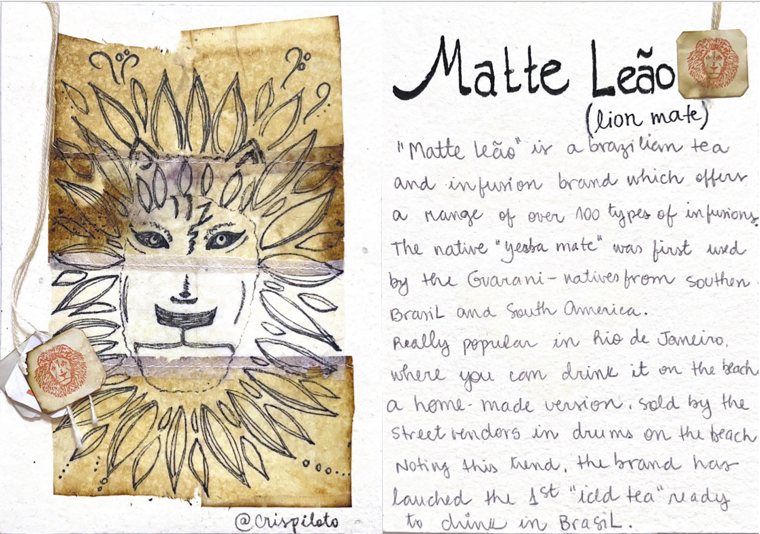 @crispiloto
Matte Leão
(lion mate)
"Matte leão" is a brazilian tea
and infusion brand which offers
a range of over 100 types of infusions.
The native "yerba mate" was first used
by the Guarani - natives from southern
Brasil and South America.
Really popular in Rio de Janeiro,
where you can drink it on the beach
a home-made version, sold by the
street vendors in drums on the beach
Noting this trend, the brand has
lauched the 1st "iced tea" ready
to drink in Brasil.